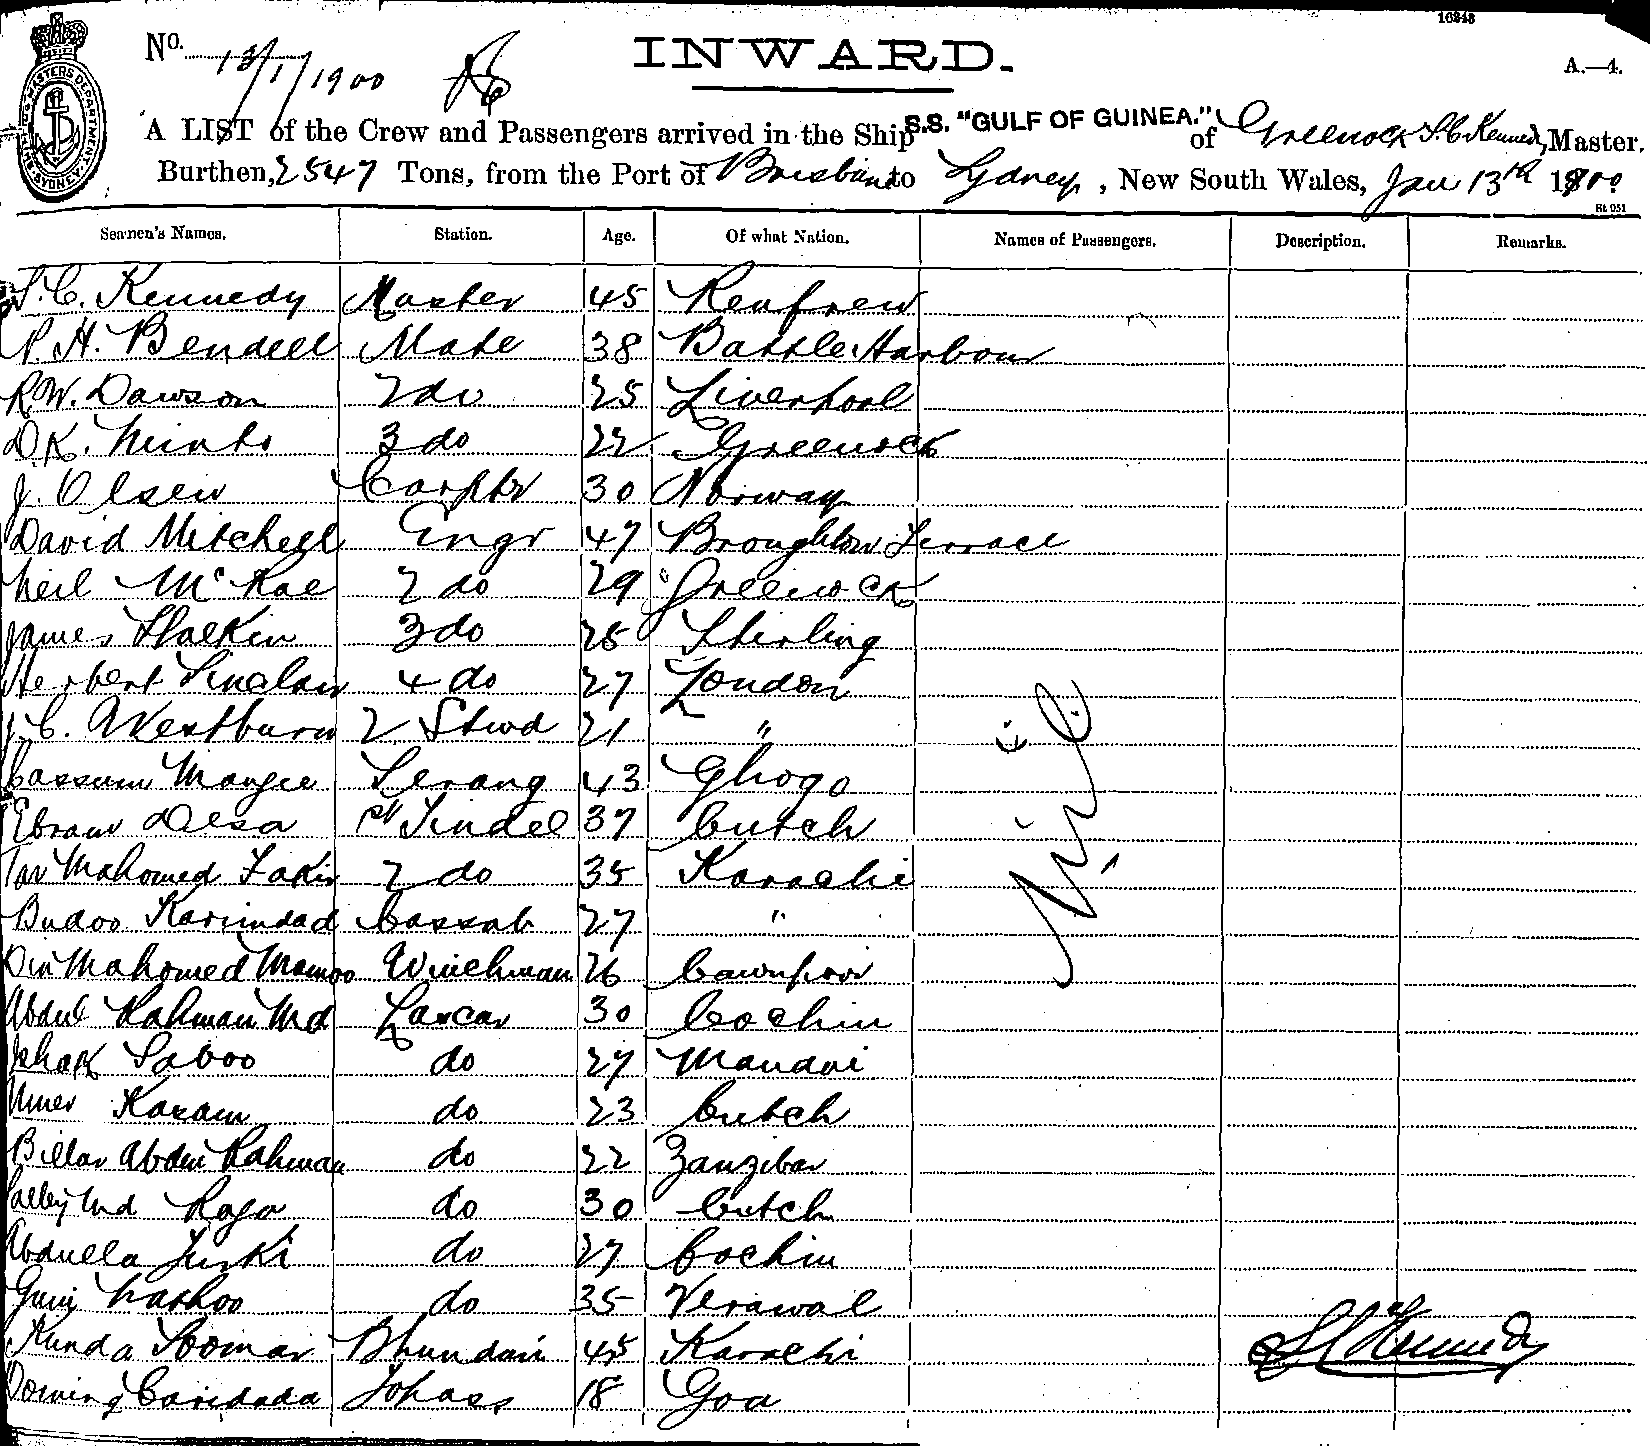 16248
No. 13/1/1900
INWARD.
A.—4.
A LIST of the Crew and Passengers arrived in the Ship S.S. "GULF OF GUINEA." of Greenock S.C. Kennedy, Master.
Burthen, 2547 Tons, from the Port of Brisbane to Sydney, New South Wales, Jan 13th 1900
St 951
Seamen's Names. Station. Age. Of what Nation. Names of Passengers. Description. Remarks.
S.C. Kennedy Master 45 Renfrew
P.H. Bendell Mate 38 Battle Harbour
R.W. Dawson 2 do 25 Liverpool
D.K. Minto 3 do 22 Greenock
J. Olsen Carptr 30 Norway
David Mitchell Engr 47 Broughton Terrace
Neil McRae 2 do 29 Greenock
James Stalkin 3 do 25 Stirling
Herbert Sinclair 4 do 27 London
J.C. Westburn 2 Stwd 21 "
Cassum Mangie Serang 43 Ghogo
Ebram Alsa Tindel 37 Cutch
Mahomed Fakir 2 do 35 Karachi
Budoo Karimdad Cassab 27 "
Din Mahomed Momoo Winchman 26 Cawnpoor
Abdul Rahman Md Lascar 30 Cochin
Ishak Saboo do 27 Mandvi
Umer Karam do 23 Cutch
Billar Abdul Rahman do 22 Zanzibar
Salley Md Raja do 30 Cutch
Abdulla Turki do 27 Cochin
Nathoo do 35 Verawal
Kunda Soomar Bhundari 45 Karachi
Caridada Tohass 18 Goa
Nil
S C Kennedy